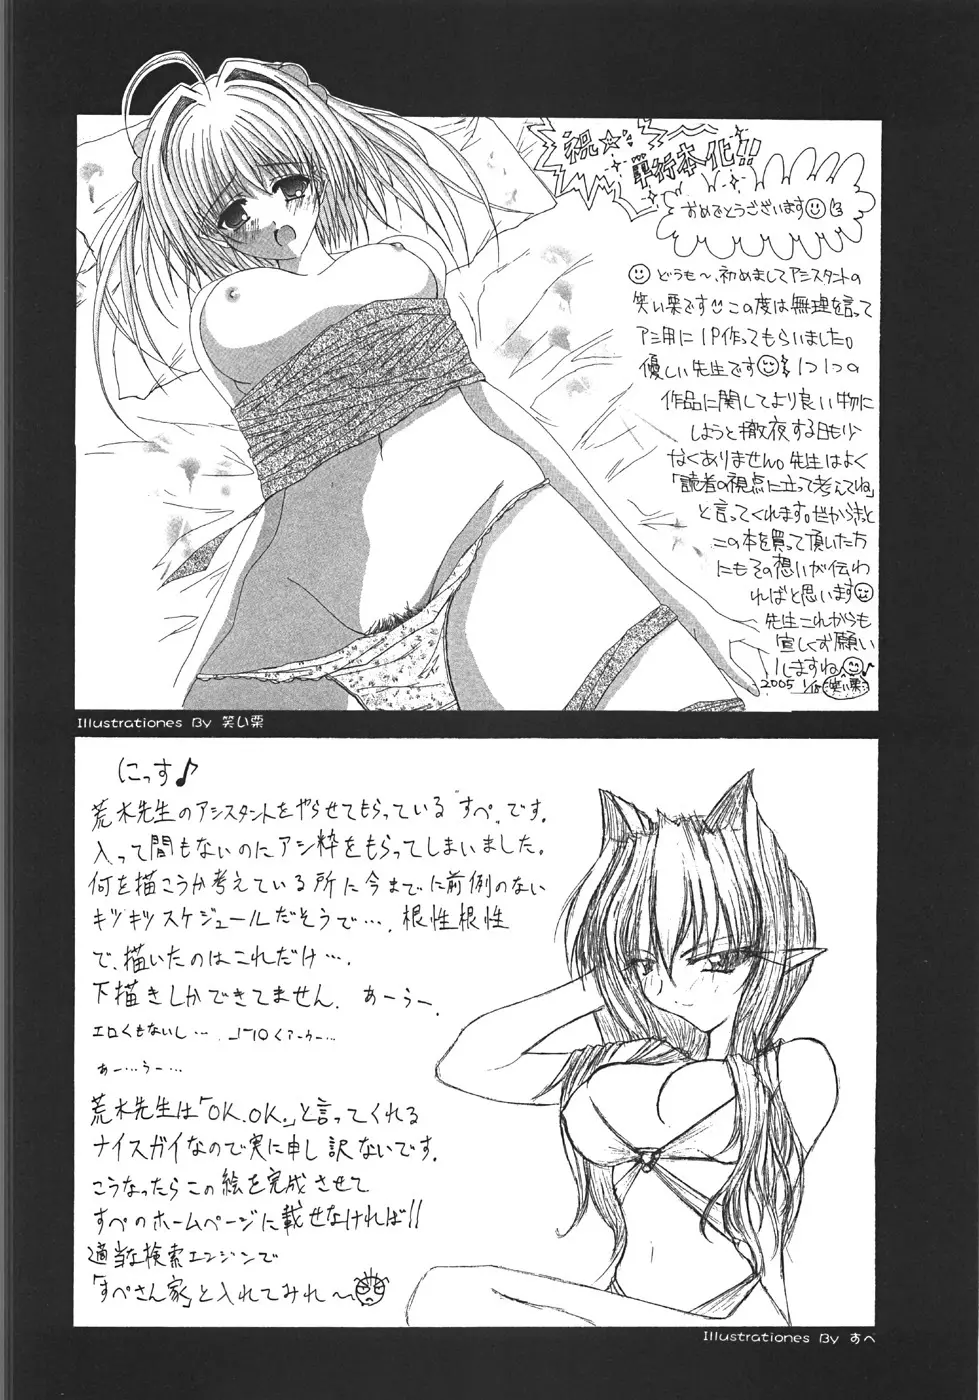 祝☆
単行本化!!
おめでとうございます
どうも〜、初めましてアシスタントの
笑い栗です この度は無理を言って
アシ用に1P作ってもらいました。
優しい先生です 1つ1つの
作品に関してより良い物に
しようと徹夜する日も少
なくありません。先生はよく
「読者の視点に立って考えてね」
と言ってくれます。だからきっと
この本を買って頂いた方
にもその想いが伝わ
ればと思います
先生これからも
宜しくお願い
しますね♪
2005 笑い栗
Illustrationes By 笑い栗
にっす♪
荒木先生のアシスタントをやらせてもらっている"すぺ"です。
入って間もないのにアシ枠をもらってしまいました。
何を描こうか考えている所に今までに前例のない
キツキツスケジュールだそうで…。根性根性
で、描いたのはこれだけ…。
下描きしかできてません。あーうー。
エロくもないし…
あー…うー…
荒木先生は「OK.OK.」と言ってくれる
ナイスガイなので実に申し訳ないです。
こうなったらこの絵を完成させて
すぺのホームページに載せなければ!!
適当な検索エンジンで
「すぺさん家」と入れてみれ〜
Illustrationes By すぺ